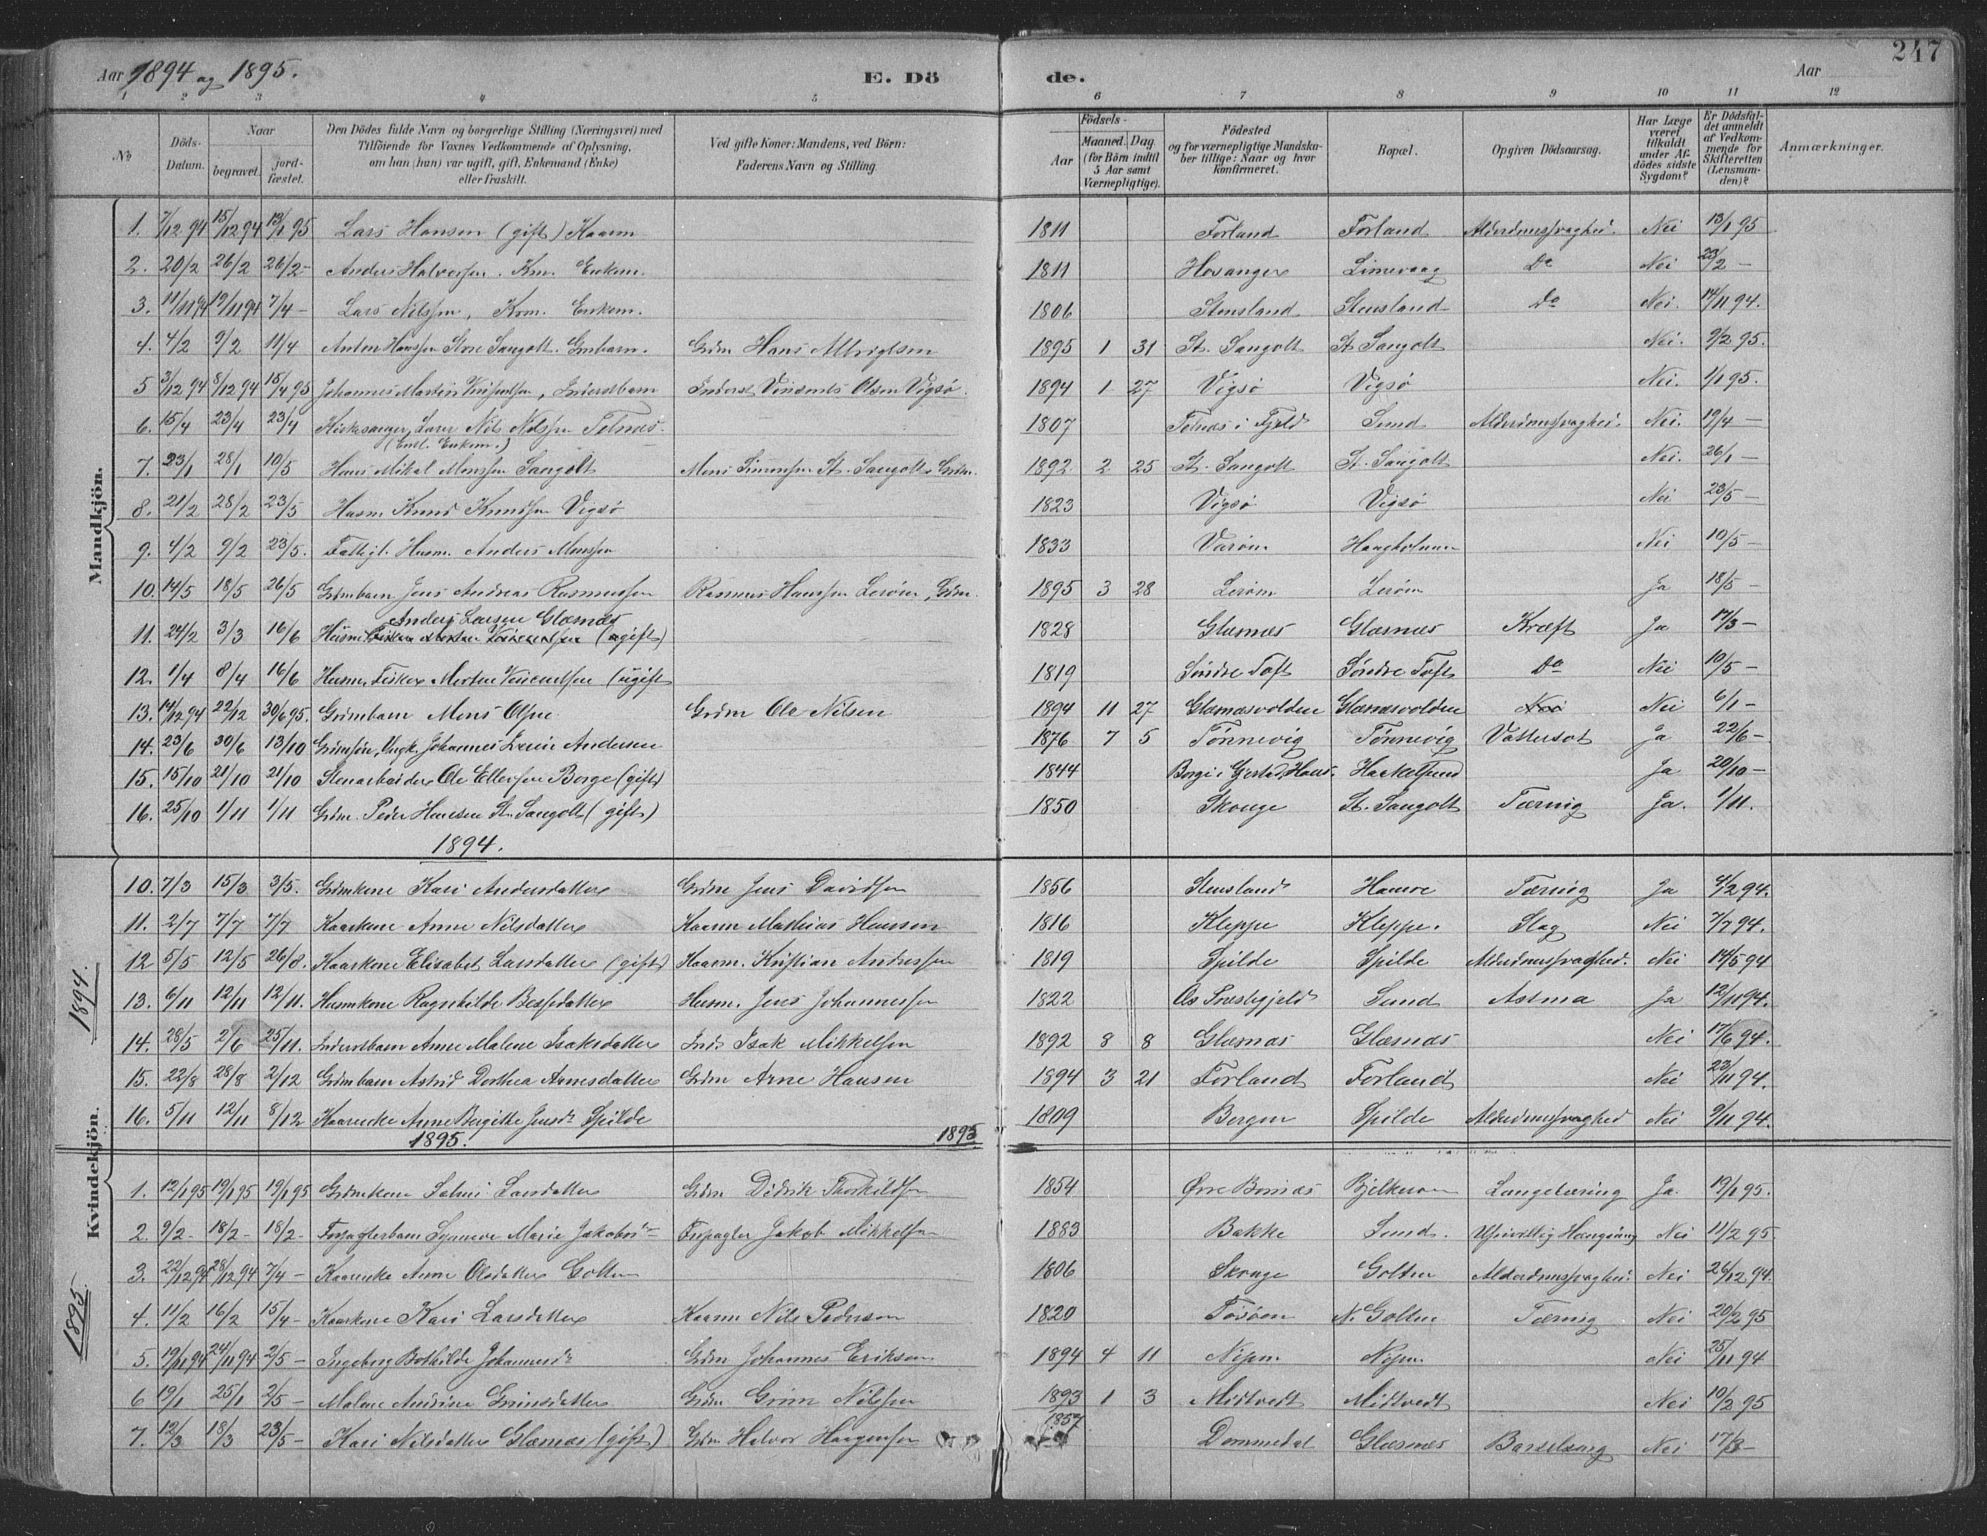 247
Aar 1894 og 1895. E. Dö de. Aar
1 2 3 4 5 6 7 8 9 10 11 12
No Döds-Datum. Naar begravet. jordfæstet. Den Dödes fulde Navn og borgerlige Stilling (Næringsvei) med Tilföiende for Voxnes Vedkommende af Oplysning, om han (hun) var ugift, gift, Enkemand (Enke) eller fraskilt. Ved gifte Koner: Mandens, ved Börn: Faderens Navn og Stilling. Födsels- Aar Maaned. Dag (for Börn indtil 5 Aar samt Værnepligtige). Födested og for værnepligtige Mandskaber tillige: Naar og hvor konfirmeret. Bopæl. Opgiven Dödsaarsag. Har Læge været tilkaldt under Afdödes sidste Sygdom? Er Dödsfaldet anmeldt af Vedkommende for Skifteretten (Lensmanden)? Anmærkninger.
Mandkjön.
1. 7/12 94 15/12 94 13/1 95 Lars Hansen (gift) Kaarm 1811 Forland Forland Alderdomssvaghed. Nei 13/1 95
2. 20/2 26/2 26/2 - Anders Halvorsen. Krm. Enkem. 1811 Hovanger Limevaag Do Nei 23/2 -
3. 11/11 94 19/11 94 7/4 - Lars Nilssen, Krm. Enkem. 1806 Stensland Stensland Do Nei. 14/11 94.
4. 4/2 9/2 11/4 Anton Hanssen Store Sangolt. Gmbarn. Grdm Hans Albrigtsen 1895 1 31 St. Sangolt St. Sangolt Nei. 9/2 95.
5 3/12 94 8/12 94 15/4 95 Johannes Martin Vinsentsen, Inderstbarn Inderst Vinsents Olsen Vigsø. 1894 1 27 Vigsø Vigsø Nei. 1/1 95.
6. 15/4 23/4 23/4 Kirkesanger, Lærer Nils Nilssen Telnæs. 1807 Telnæs i Fjeld Sund Alderdomssvaghed. Nei. 19/4 -
(Eml. Enkem.)
7. 23/1 28/1 10/5 Hans Mikal Monssen Sangolt Mons Simonsen St. Sangolt, Grdm. 1892 2 25 St. Sangolt St. Sangolt Nei. 26/1 -
8. 21/2 28/2 23/5 Husm Knud Knudsen Vigsø 1823 Vigsø Vigsø Nei 23/5 -
9. 4/2 9/2 23/5. Fattigl. Husm. Anders Monssen 1833 Værøen Haagholmen Nei 10/5 -
10. 14/5 18/5 26/5 Grdmbarn Jens Andreas Rasmussen Rasmus Hanssen Lerøen, Grdm. 1895 3 28 Lerøen Lerøen Ja 18/5 -
Anders Larsen Glæsnæs
11. 24/2 3/3 16/6 Husm. (ugift) 1828 Glæsnæs Glæsnæs Kræft Ja 17/3 -
12. 1/4 8/4 16/6 Husm. Fisker Morten Vincentsen (ugift) 1819 Søndre Toft Søndre Toft Do Nei 10/5 -
13. 14/12 94 22/12 30/6 95. Grdmbarn Mons Olsen Grdm Ole Nilsen 1894 11 27 Glæsnæsvolden Glæsnæsvolden Nei Nei 6/1 -
14. 23/6 30/6 13/10 Grdmsøn, Ungk. Johannes Andersen 1876 7 5 Tønnevig Tønnevig Vattersot Ja 22/6 -
15. 15/10 21/10 21/10 Stenarbeider Ole Ellersen Borge (gift) 1844 Borge i Gjerstad Hans. Hackelsund Ja 20/10 -
16. 25/10 1/11 1/11 Grdm. Peder Hansen St. Sangolt (gift) 1850 Skouge St. Sangolt Tæring Ja. 1/11.
1894.
Kvindekjön.
1894.
10. 7/3 15/3 3/5. Grdmkone Kari Andersdatter Grdm Jens Davidsen 1856 Stensland Hamre Tæring Ja 4/2 94.
11. 2/7 7/7 7/7 Kaarkone Anne Nilsdatter Kaarm Mathias Hansen 1816 Kleppe Kleppe. Slag Nei 7/7 94.
12 5/5 12/5 26/8. Kaarkone Elisabet Larsdatter (gift) Kaarm. Kristian Anderssen 1819 Spilde Spilde Alderdomssvaghed. Nei 14/5 94
13. 6/11 12/11 12/11. Husmkone Ragnhilde Bessedatter Husm. Jens Johannessen 1822 Os Præstegjeld Sund Astma Ja 12/11 94.
14. 28/5 2/6 25/11. Inderstbarn Anne Malene Isaksdatter Inds Isak Mikkelsen 1892 8 8 Glæsnæs Glæsnæs Nei 17/6 94.
15. 22/8 28/8 2/12 Grdmbarn Astrid Dorthea Arnesdatter Grdm Arne Hansen 1894 3 21 Forland Forland Nei 23/11 94.
16. 5/11 12/11 8/12 Kaarenke Anne Bergitte Jensd. Spilde 1809 Bergen Spilde Alderdomssvaghed Nei 9/11 94.
1895. 1895
1895.
1. 12/1 95 19/1 95 19/1 95 Grdmkone Larsdatter Grdm Didrik Thorkildsen 1854 Øvre Bornæs Bjelkerøen Lungetæring Ja. 19/1 95.
2. 9/2 - 18/2 - 18/2 - Forpagterbarn Synneve Marie Jakobsd. Forpagter Jakob Mikkelsen 1883 Bakke Sund. Ufrivillig Hængning Nei 11/2 95
3. 22/12 94 28/12 94 7/4 - Kaarenke Anne Olsdatter Golten 1806 Skouge Golten Alderdomssvaghed. Nei 26/12 94.
4. 11/2 16/2 15/4 - Kaarkone Kari Larsdatter Kaarm Nils Pedersen 1820 Tøsøen N. Golten Tæring Nei 20/2 95
5. 19/11 94 24/11 94 2/5 - Ingeborg Bothilde Johannesd. Grdm Johannes Eriksen 1894 4 11 Nipen Nipen Nei 25/11 94
6 19/1 25/1 2/5 - Malene Andrine Grimsdatter Grdm Grim Nilssen 1893 1 3 Midtvedt Midtvedt Nei 10/2 95
7. 12/3 18/3 23/5 - Kari Nilsdatter Glæsnæs (gift) Grdm Halvor Haagensen 1857 Dommedal Glæsnæs Barselseng Nei 17/3 -